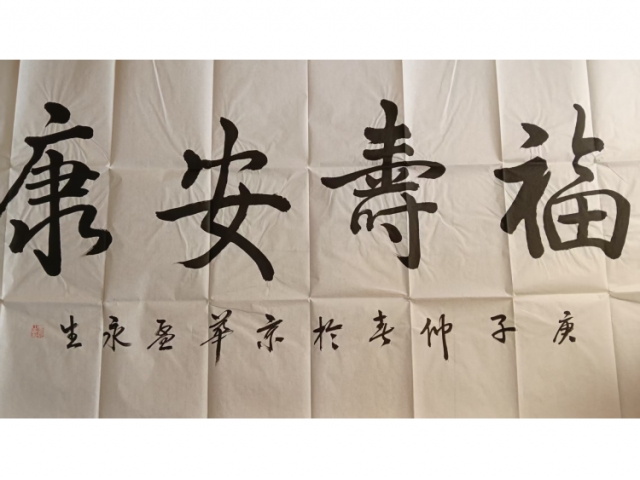 福壽安康
庚子仲春於京華盈永生